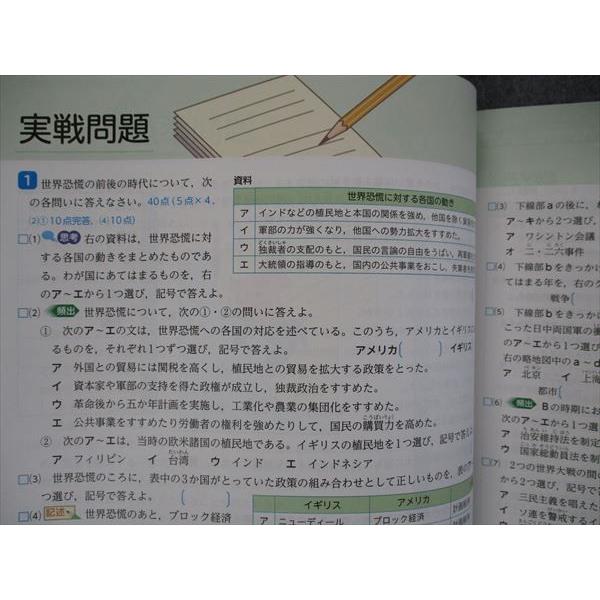 実戦問題
1 世界恐慌の前後の時代について，次
の各問いに答えなさい。40点(5点×4，
(2)①10点完答，(4)10点)
□(1) 思考 右の資料は，世界恐慌に対
する各国の動きをまとめたものであ
る。わが国にあてはまるものを，右
のア～エから1つ選び，記号で答えよ。
資料
世界恐慌に対する各国の動き
ア インドなどの植民地と本国の関係を強め，他国を除く
イ 軍部の力が強くなり，他国への勢力拡大をすすめた。
ウ 独裁者の支配のもと，国民の言論の自由をうばい，再軍備
どくさいしゃ
エ 大統領の指導のもと，国内の公共事業をおこし，失業者を
□(2) 頻出 世界恐慌について，次の①・②の問いに答えよ。
① 次のア～エの文は，世界恐慌への各国の対応を述べている。このうち，アメリカとイギリス
るものを，それぞれ1つずつ選び，記号で答えよ。 アメリカ( ) イギリス
ア 外国との貿易には関税を高くし，植民地との貿易を拡大する政策をとった。
イ 資本家や軍部の支持を得た政権が成立し，独裁政治をすすめた。
ウ 革命後から五か年計画を実施し，工業化や農業の集団化をすすめた。
エ 公共事業をすすめたり労働者の権利を強めたりして，国民の購買力を高めた。
こうばいりょく
② 次のア～エは，当時の欧米諸国の植民地である。イギリスの植民地を1つ選び，記号で答えよ
ア フィリピン イ 台湾 ウ インド エ インドネシア
たいわん
□(3) 世界恐慌のころに，表中の3か国がとっていた政策の組み合わせとして正しいものを，表の
つ選び，記号で答えよ。 ( )
イギリス アメリカ
ア ニューディール ブロック経済
□(4) 記述 世界恐慌のあと，ブロック経済
(3) 下線部aの後に，
ア～キから2つ選び，
ア ワシントン会議
オ 二・二六事件
(4) 下線部bをきっか
てはまる年を，右のク
戦争(
(5) 下線部bをきっか
こった日中両国軍の衝
のア～エから1つ選
右の略地図中のa～d
ア 北京 イ 上海
都市(
□(6) 頻出 Bの時期にお
ア 治安維持法を制定
ウ 国家総動員法を制
□(7) 2つの世界大戦の間
から2つ選び，記号で
ア 三民主義を唱えた
イ ソ連を警戒するイ